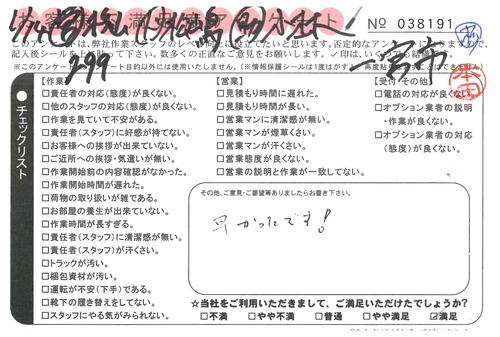 No 038191
このアンケートは、弊社作業スタッフのレベル向上に役立てたいと思います。否定的なアンケートになりますので、
一宮市
299
チェックリスト
【作業】
□責任者の対応(態度)が良くない。
□他のスタッフの対応(態度)が良くない。
□作業を見ていて不安がある。
□責任者(スタッフ)に好感が持てない。
□お客様への挨拶が出来ていない。
□ご近所への挨拶・気遣いが無い。
□作業開始前の内容確認がなかった。
□作業開始時間が遅れた。
□荷物の取り扱いが雑である。
□お部屋の養生が出来ていない。
□作業時間が長すぎる。
□責任者(スタッフ)に清潔感が無い。
□責任者(スタッフ)が汗くさい。
□トラックが汚い。
□梱包資材が汚い。
□運転が不安(下手)である。
□靴下の履き替えをしてない。
□スタッフにやる気がみられない。
【営業】
□見積もり時間に遅れた。
□見積もり時間が長い。
□営業マンに清潔感が無い。
□営業マンが煙草くさい。
□営業マンが汗くさい。
□営業態度が良くない。
□営業の説明と作業が一致してない。
【受付・その他】
□電話の対応が良くない。
□オプション業者の説明
・作業が良くない。
□オプション業者の対応
(態度)が良くない。
その他、ご意見・ご要望等ありましたらお書き下さい。
早かったです!
☆当社をご利用いただきまして、ご満足いただけたでしょうか?
□不満 □やや不満 □普通 □やや満足 ☑満足